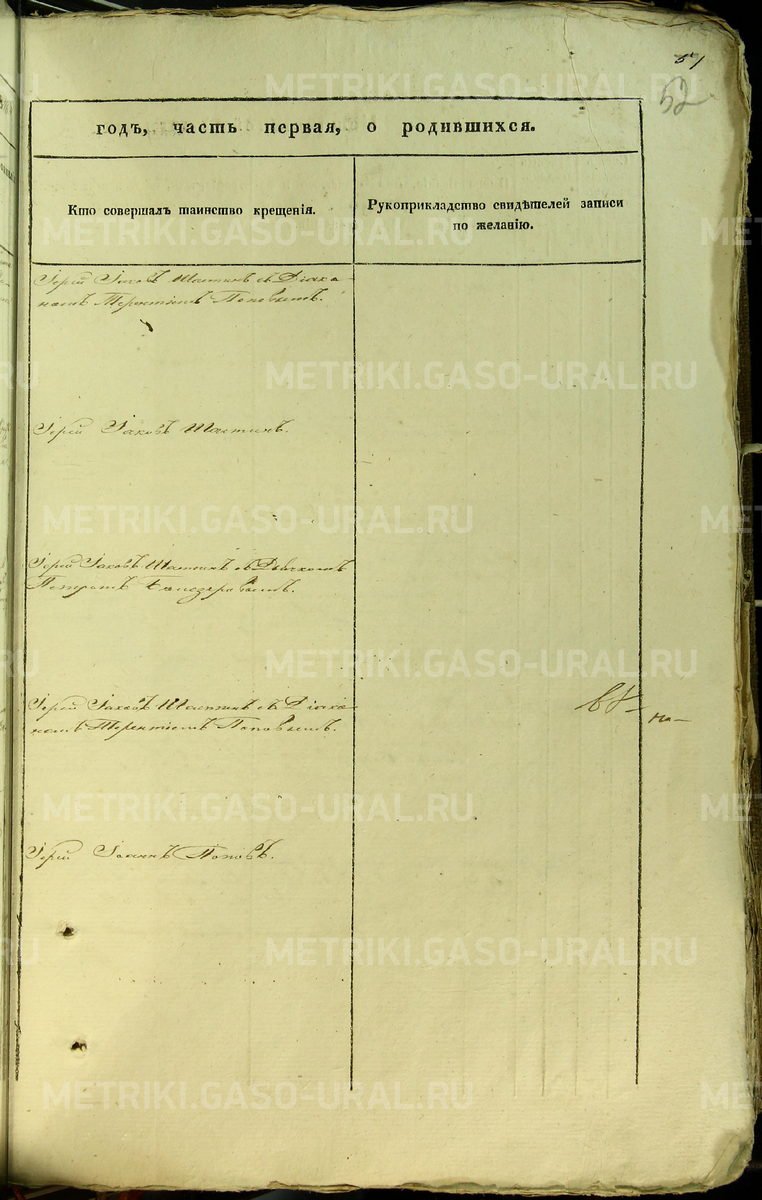 51
52
METRIKI.GASO-URAL.RU
годъ, часть первая, о родившихся.
Кто совершалъ таинство крещенія.
Рукоприкладство свидѣтелей записи
по желанію.
METRIKI.GASO-URAL.RU
Іерей Іаковъ Шастинъ съ Діако-
номъ Терентіемъ Поповымъ.
METRIKI.GASO-URAL.RU
Іерей Іаковъ Шастинъ.
METRIKI.GASO-URAL.RU
Іерей Іаковъ Шастинъ съ Дьячкомъ
Петромъ
METRIKI.GASO-URAL.RU
Іерей Іаковъ Шастинъ съ Діако-
номъ Терентіемъ Поповымъ.
METRIKI.GASO-URAL.RU
Іерей Іоаннъ Поповъ.
METRIKI.GASO-URAL.RU
METRIKI.GASO-URAL.RU